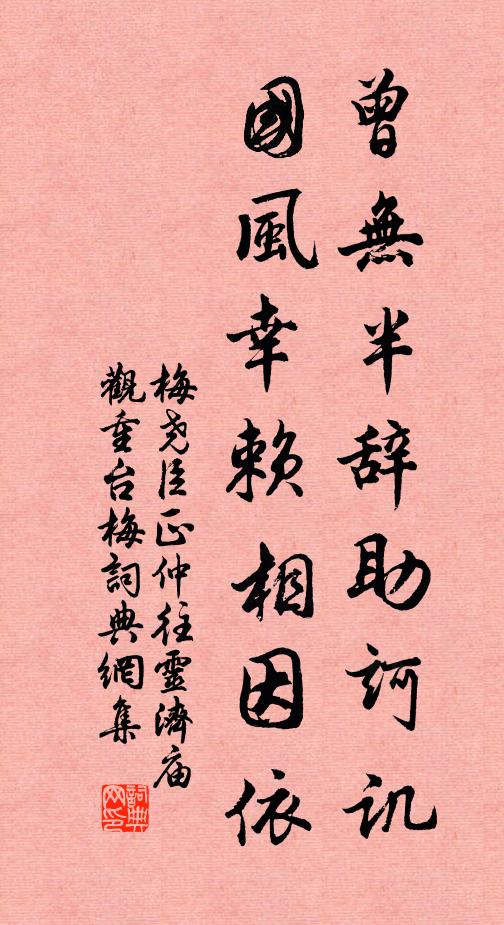 曾無半辞助訶訊
國風幸賴相因依
梅尧臣正仲往靈濟庙
觀重台梅詞典網集
詞典网印